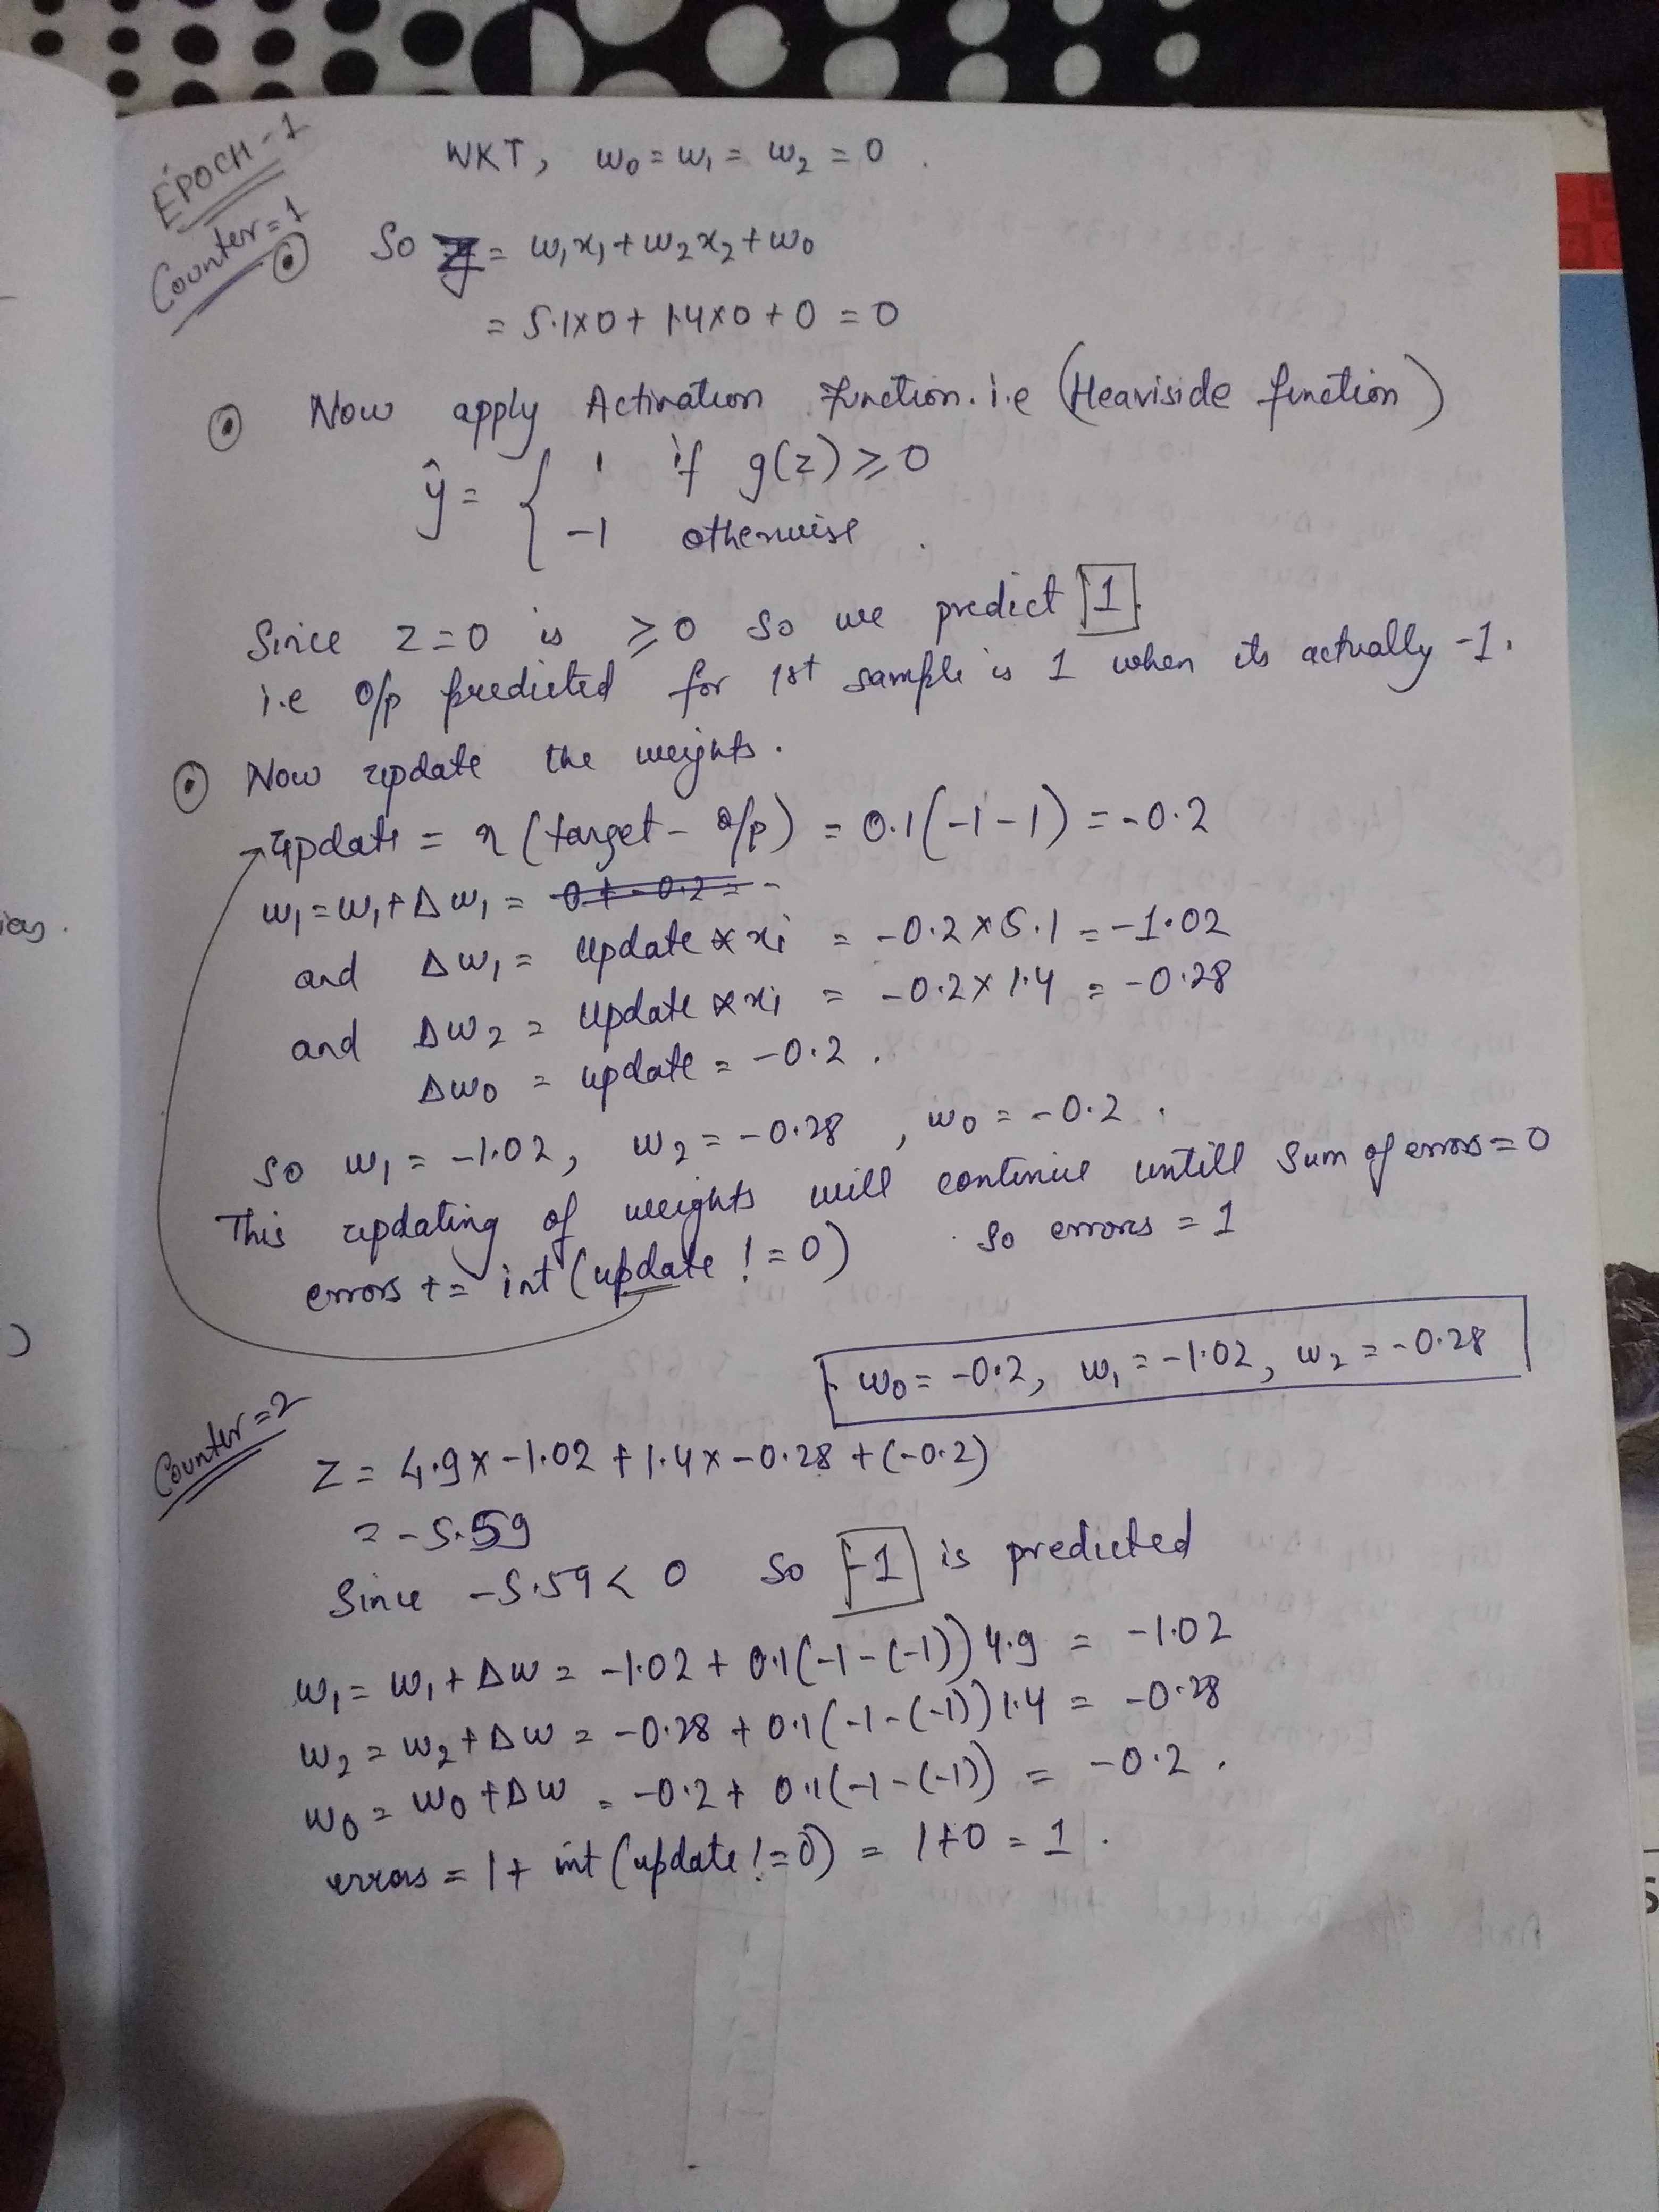 EPOCH-1
WKT, w0 = w1 = w2 = 0 .
Counter=1
So = w1x1 + w2x2 + w0
= 5.1x0 + 1.4x0 + 0 = 0
Now apply Activation function. i.e (Heaviside function)
ŷ = { 1 if g(z) ≥ 0
-1 otherwise .
Since z=0 is ≥0 so we predict 1.
i.e o/p predicted for 1st sample is 1 when its actually -1.
Now update the weights.
update = η (target - o/p) = 0.1(-1-1) = -0.2
w1 = w1 + Δw1 = 0 + -0.2 = -
and Δw1 = update * xi = -0.2 x 5.1 = -1.02
and Δw2 = update * xi = -0.2 x 1.4 = -0.28
Δw0 = update = -0.2 .
So w1 = -1.02, w2 = -0.28 , w0 = -0.2 .
This updating of weights will continue untill sum of errors=0
errors += int (update != 0) . So errors = 1
w0 = -0.2, w1 = -1.02, w2 = -0.28
Counter=2
z = 4.9x -1.02 + 1.4x -0.28 + (-0.2)
= -5.59
Since -5.59 < 0 so -1 is predicted
w1 = w1 + Δw = -1.02 + 0.1(-1-(-1)) 4.9 = -1.02
w2 = w2 + Δw = -0.28 + 0.1(-1-(-1)) 1.4 = -0.28
w0 = w0 + Δw = -0.2 + 0.1(-1-(-1)) = -0.2 .
errors = 1 + int (update != 0) = 1+0 = 1 .